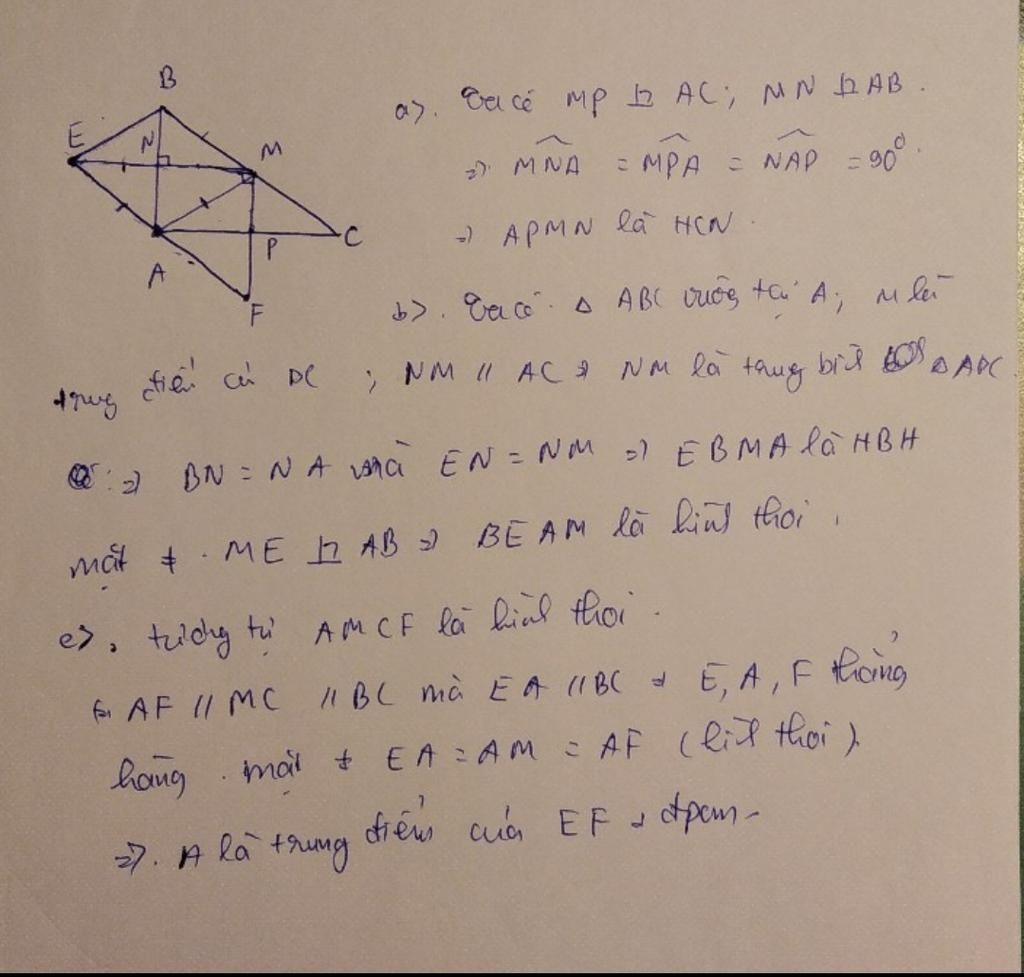 B
E
N
M
A
P
C
F
a). Ta có MP ⊥ AC; MN ⊥ AB.
=> MNA = MPA = NAP = 90°
=> APMN là HCN.
b). Ta có Δ ABC vuông tại A; M là
trung điểm của BC; NM // AC => NM là trung bình Δ ABC
=> BN = NA mà EN = NM => EBMA là HBH
mặt ≠ . ME ⊥ AB => BEAM là hình thoi.
c). tương tự AMCF là hình thoi.
AF // MC // BC mà EA // BC => E, A, F thẳng
hàng. mặt ≠ EA = AM = AF (hình thoi).
=> A là trung điểm của EF => đpcm